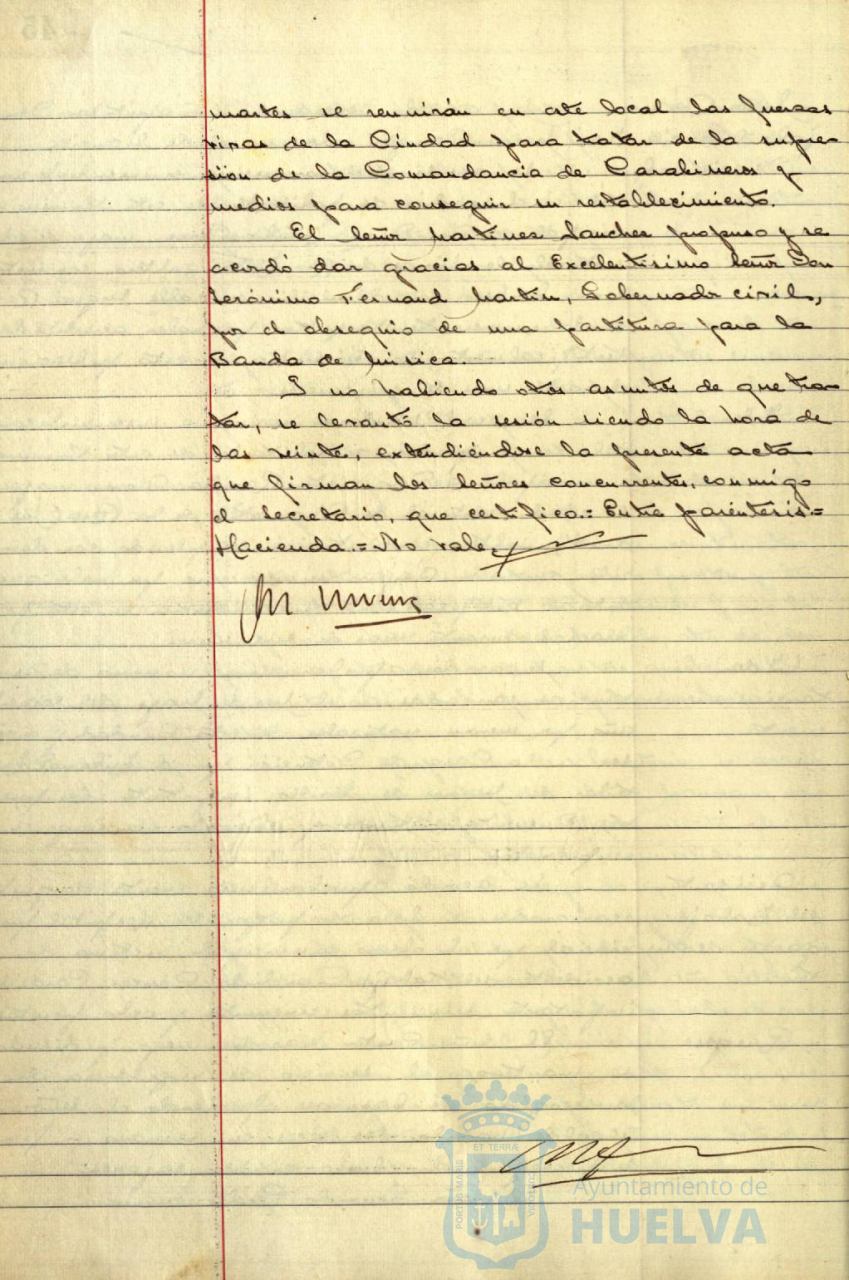 martes se reunirán en este local las fuerzas
vivas de la Ciudad para tratar de la supre-
sión de la Comandancia de Carabineros y
medios para conseguir su restablecimiento.
El Señor Martínez Sanchez propuso y se
acordó dar gracias al Excelentísimo Señor Don
Jerónimo Fernaud Martín, Gobernador civil,
por el obsequio de una partitura para la
Banda de Música.
I no habiendo otros asuntos de que tra-
tar, se levantó la sesión siendo la hora de
las veinte, extendiéndose la presente acta
que firman los Señores concurrentes, conmigo
el Secretario, que certifico.= Entre paréntesis.=
Hacienda.= No vale.
ET TERRÆ
PORTUS MARIS
CUSTODIA
Ayuntamiento de
HUELVA